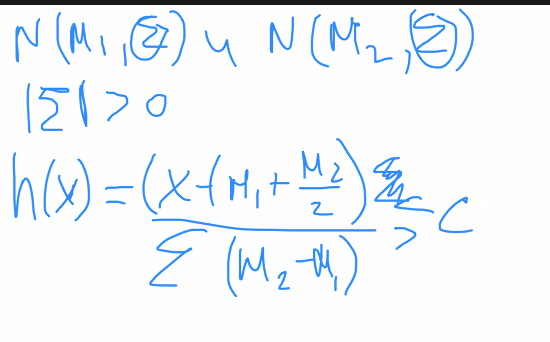 N(M₁, Σ) и N(M₂, Σ)
|Σ| > 0
h(x) = (x - (M₁ + M₂/2) / Σ (M₂ - M₁) > C